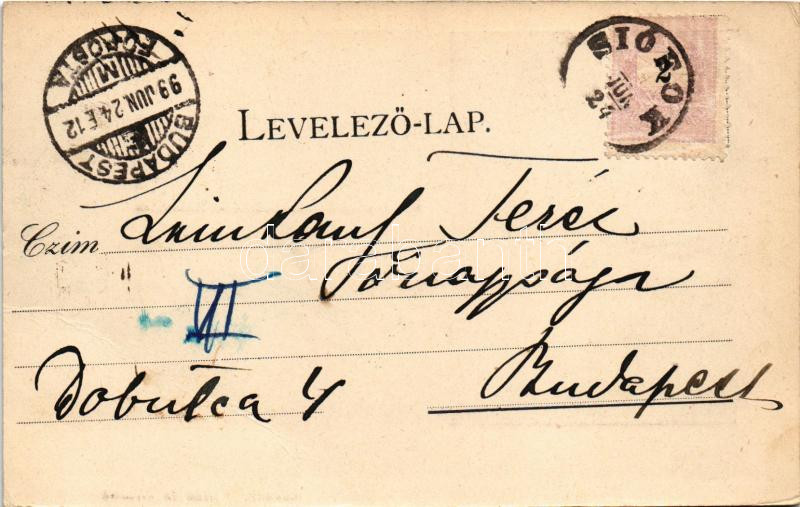 BUDAPEST
99 JUN. 24. É. 12
FŐPOSTA
M
SIÓFOK
JUN.
24
LEVELEZŐ-LAP.
Czím Leinkauf Teréz
Őnagysága
VII
Dobutca 4 Budapest
darabanth